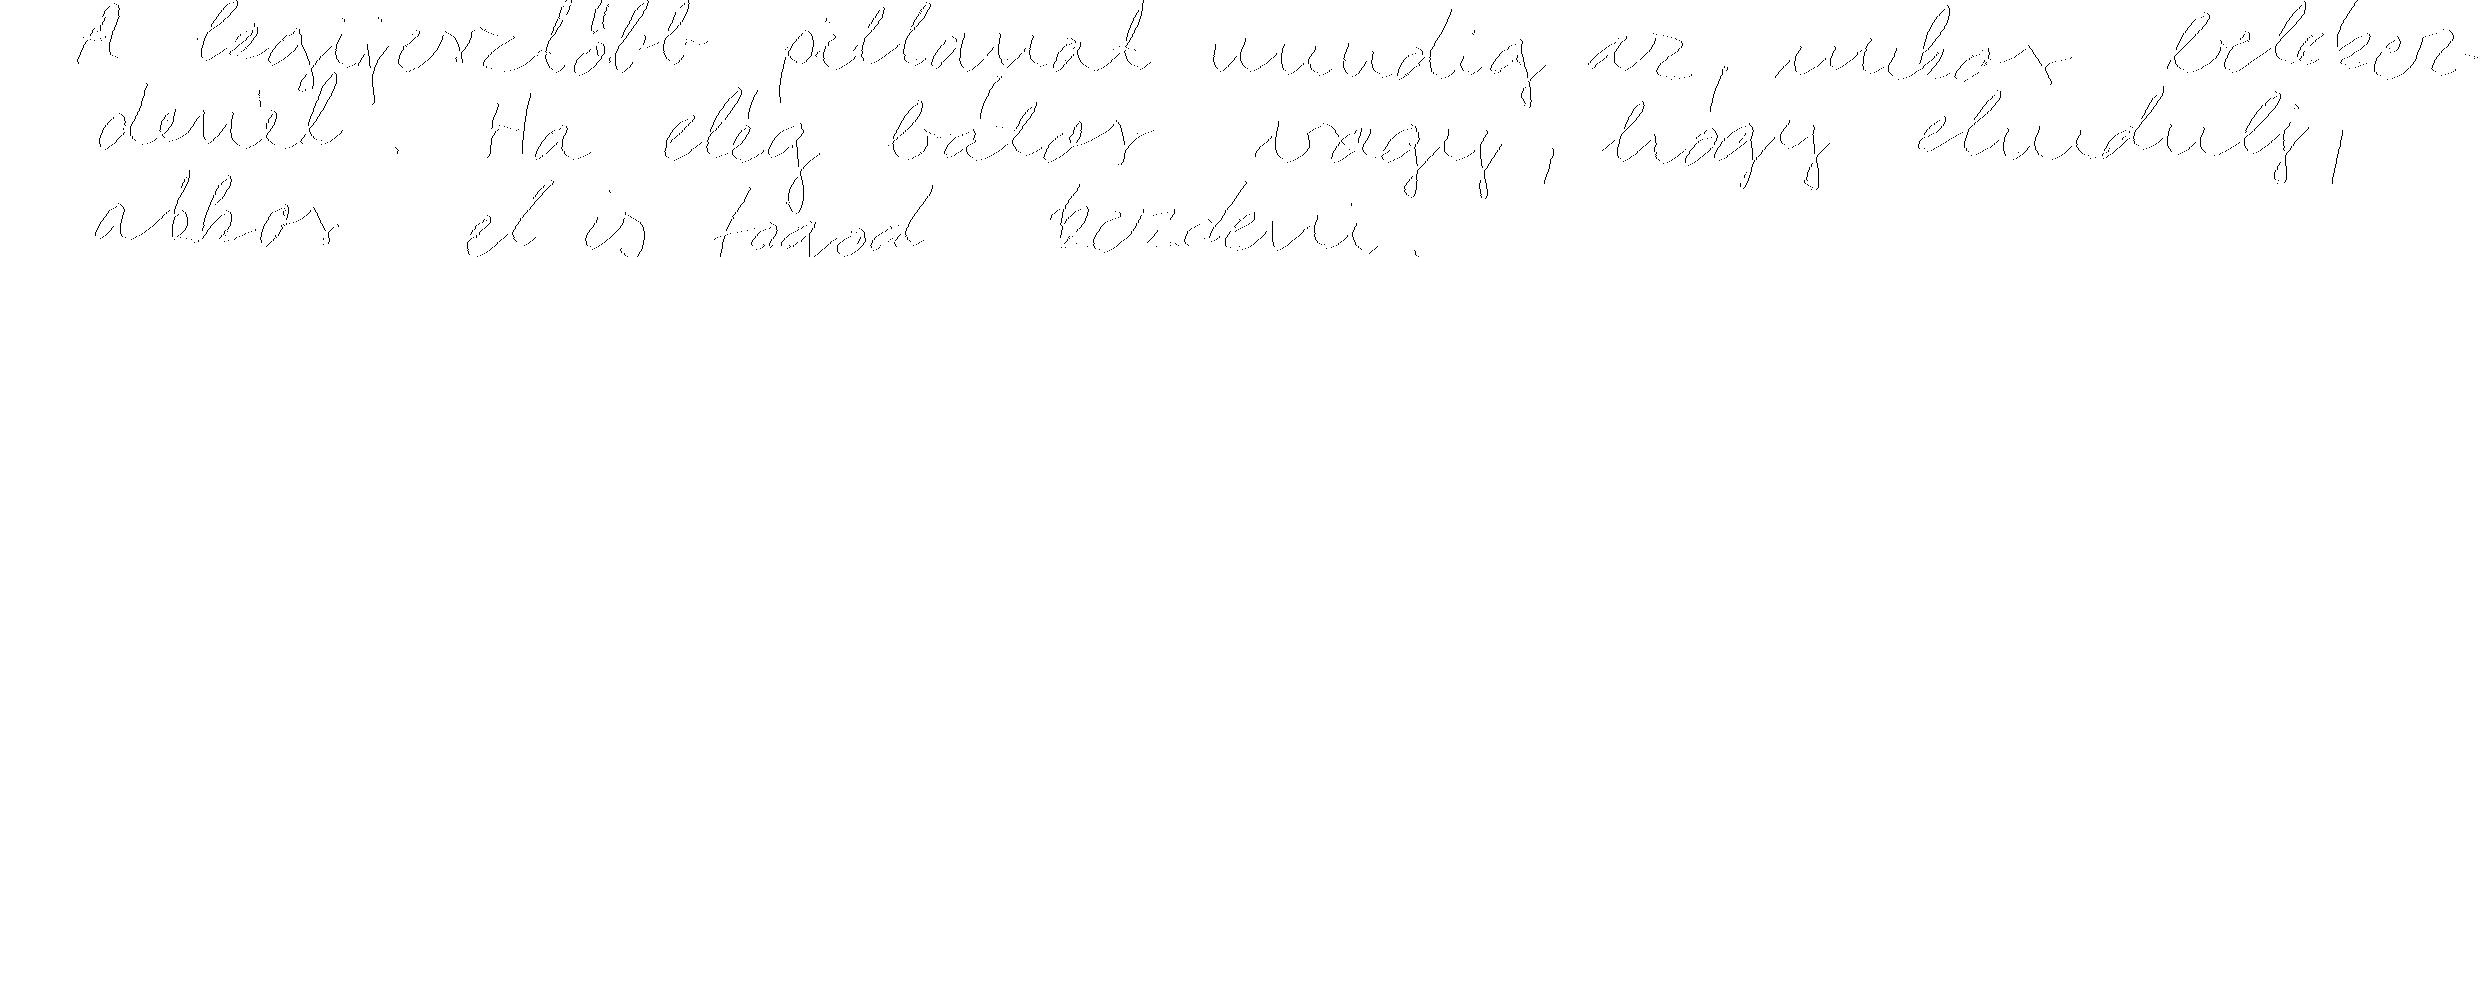 A legijesztőbb pillanat mindig az, mikor belekez-
denél. Ha elég bátor vagy, hogy elindulj,
akkor el is fogod kezdeni.